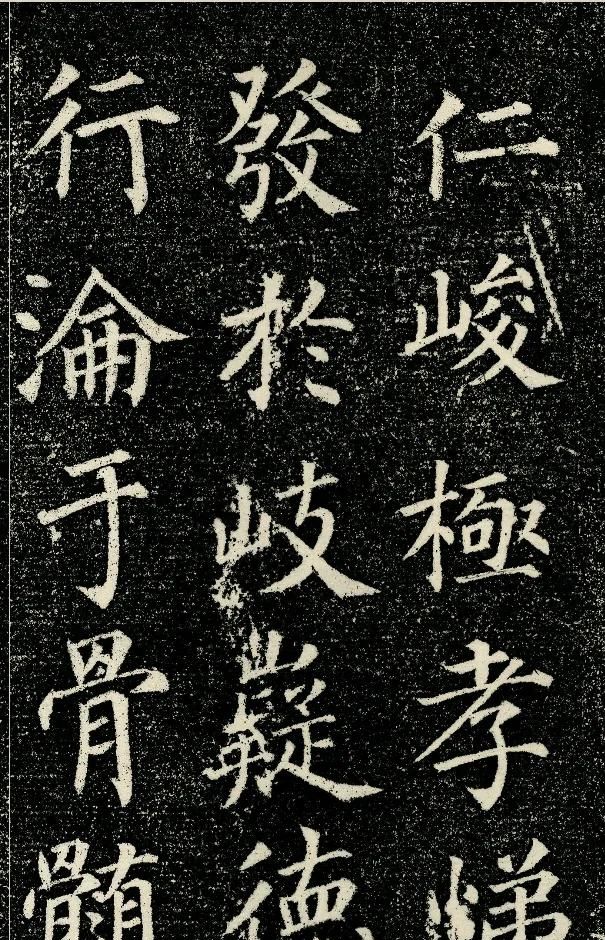 仁峻極孝悌
發於歧嶷德
行淪于骨髓